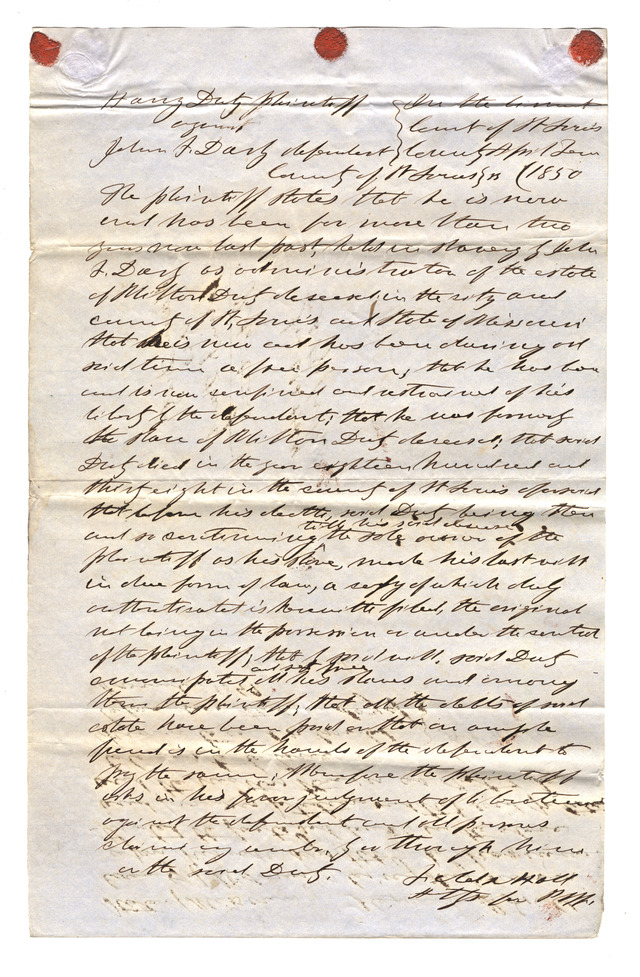 Harry Duty plaintiff } In the Circuit
against } Court of St Louis
John F. Darby defendent } County April Term
County of St Louis } ss (1850
The plaintiff states that he is now
and has been for more than two
years now last past, held in slavery by John
F. Darby as administrator of the estate
of Milton Duty deceased in the city and
county of St. Louis and State of Missouri
that he is now and has been during all
said time a free person, that he has been
and is now confined and restrained of his
liberty by the defendent; that he was formerly
the slave of Milton Duty deceased, that said
Duty died in the year eighteen hundred and
thirty eight in the county of St Louis aforesaid
that before his death, said Duty being then
and so continuing till his said decease the sole owner of the
plaintiff as his slave, made his last will
in due form of law, a copy of which duly
authenticated is herewith filed, the original
not being in the possession or under the control
of the plaintiff; that by said will, said Duty
emancipated and set free all his slaves and among
them the plaintiff; that all the debts of said
estate have been paid or that an ample
fund is in the hands of the defendent to
pay the same; Wherefore the plaintiff
asks in his favor judgment of liberation
against the defendent and all persons
claiming under, by or through him
or the said Duty.
Attys for Plff